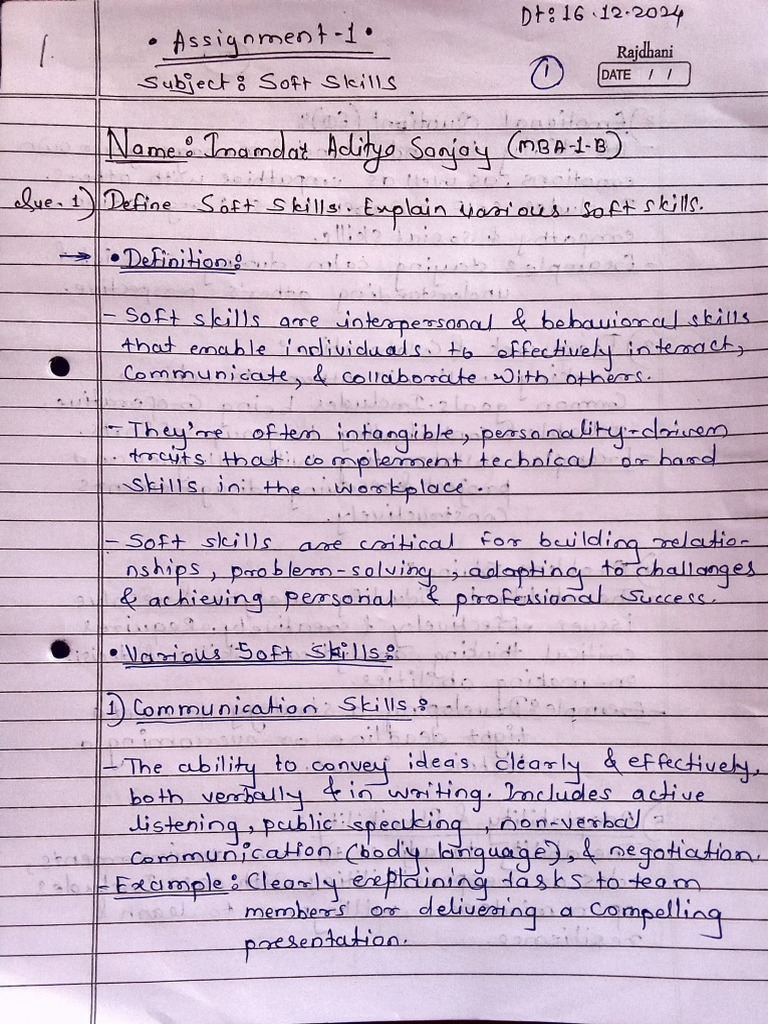 Dt: 16.12.2024
1.
• Assignment-1 •
Subject: Soft Skills
1
Rajdhani
DATE / /
Name: Inamdar Aditya Sanjay (MBA-1-B)
Que. 1) Define Soft Skills. Explain various soft skills.
→ • Definition:
- Soft skills are interpersonal & behavioral skills
that enable individuals to effectively interact,
communicate, & collaborate with others.
- They're often intangible, personality-driven
traits that complement technical or hard
skills in the workplace.
- Soft skills are critical for building relatio-
nships, problem-solving, adapting to challanges
& achieving personal & professional success.
• Various Soft Skills:
1) Communication Skills:
- The ability to convey ideas clearly & effectively,
both verbally & in writing. Includes active
listening, public speaking, non-verbal
communication (body language), & negotiation.
- Example: Clearly explaining tasks to team
members or delivering a compelling
presentation.